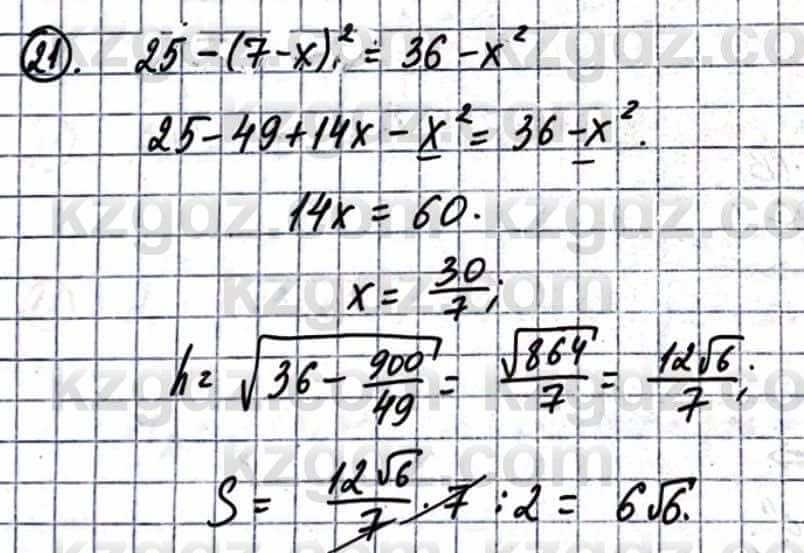 21. 25 - (7 - x)² = 36 - x²
25 - 49 + 14x - x² = 36 - x².
14x = 60.
x = 30/7;
h = √(36 - 900/49) = √864/7 = 12√6/7;
S = 12√6/7 · 7 : 2 = 6√6.
kzgdz.com